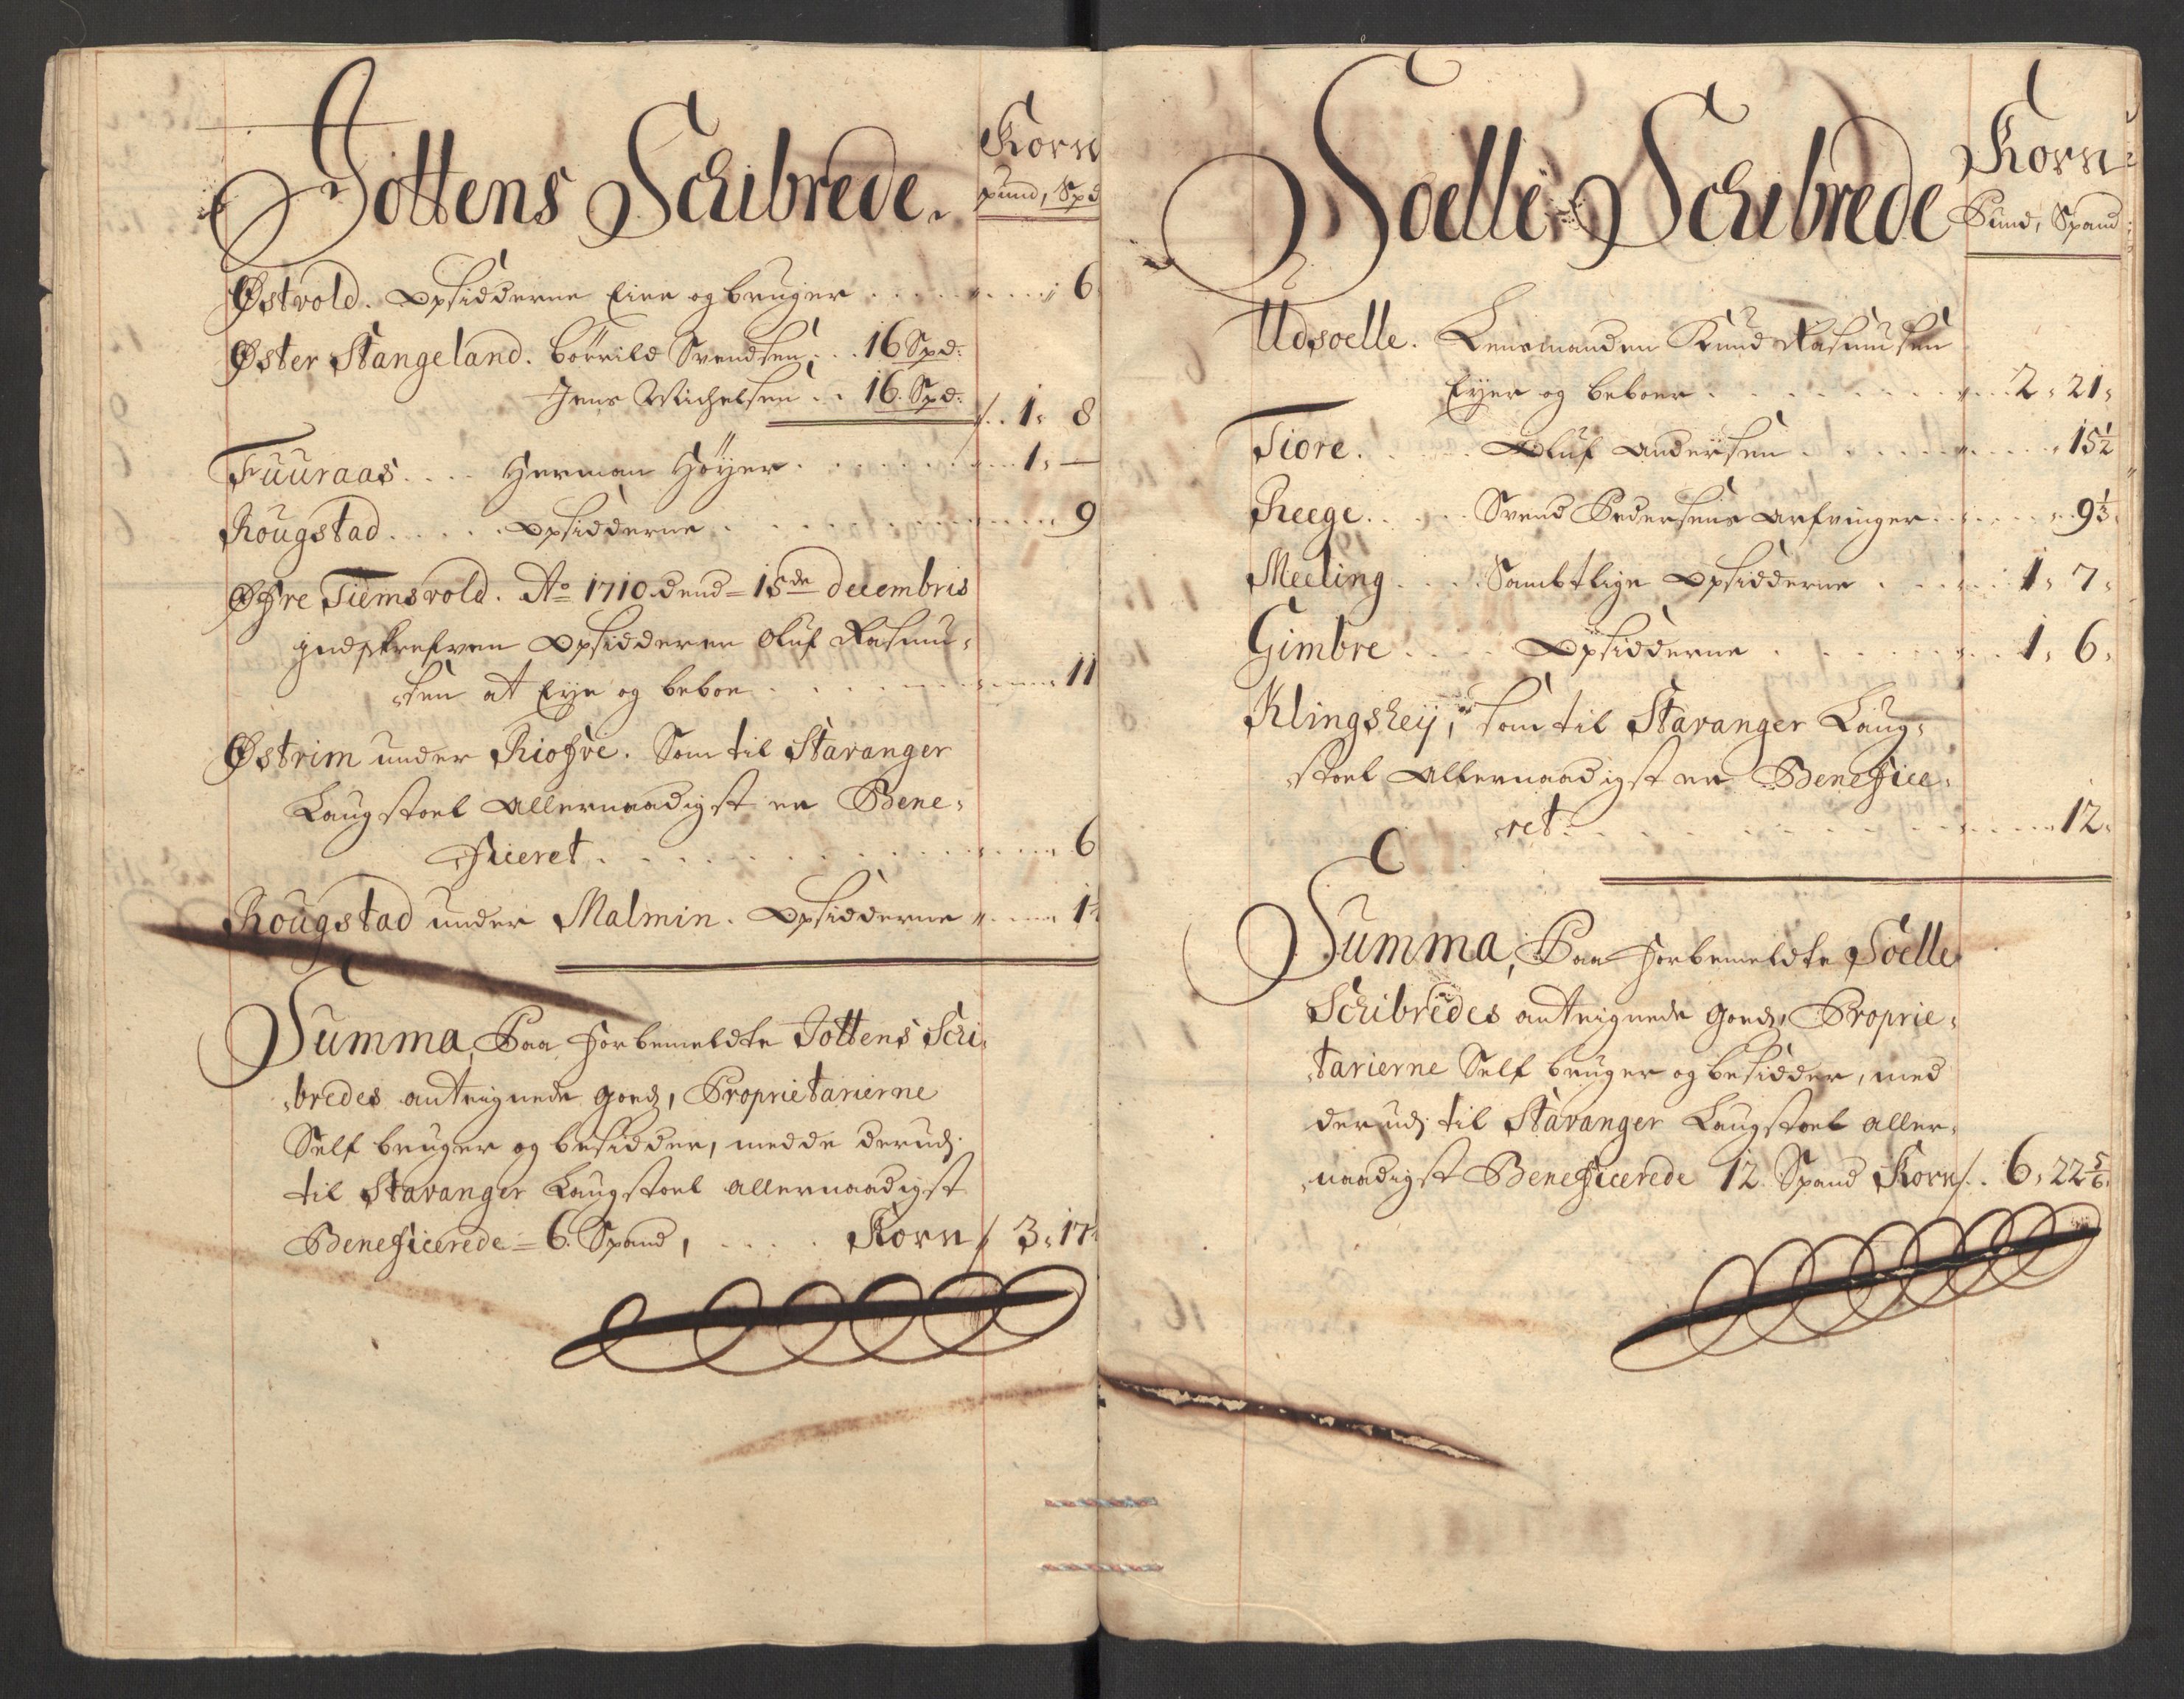 Jottens Schibrede.
Korn
pund, Spd
Østvold. Opsidderne Eier og bruger . . . . . 6
Øster Stangeland. Børrild Svendsen . . 16 Spd:
Jens Michelsen . . 16. Spd:
/. . 1. 8
Fuuraas . . . . Herman Høyer . . . . . . 1. —
Rougstad . . . . . Opsidderne . . . . . . 9
Øfre Tiemsvold. Ao 1710. dend = 15de decembris
indskrefven Opsidderen Oluf Rasmu-
sen at Eye og beboe . . . . . . 11
Østrim under Riofre. Som til Stavanger
Laugstoel allernaadigst er Bene-
ficeret . . . . . . . . 6
Rougstad under Malmin. Opsidderne . . . 1½
Summa, Paa forbemeldte Jottens Schi-
bredes anteignede goeds, Proprietarierne
Self bruger og besidder, medde derudj
til Stavanger Laugstoel allernaadigst
Beneficerede = 6. Spand, . . . . Korn / 3. 17½
Soelle Schibrede
Korn
Pund, Spand
Udsoelle. Lensmanden Knud Rasmusen
Eyer og beboer . . . . . . . . 2. 21.
Tiore. . . . . . Oluf Andersen . . . . . . . 15½
Reege. . . . . . Svend Pedersens Arfvinger . . . . . 9⅓
Meeling . . . . Sambtlige Opsidderne . . . . . 1. 7.
Gimbre . . . . . Opsidderne . . . . . . . 1. 6.
Klingshey, som til Stavanger Laug-
stoel Allernaadigst er Benefice-
ret . . . . . . . . . 12.
Summa, Paa forbemeldte Soelle
Schibredes anteignede goeds, Proprie-
tarierne Self bruger og besidder, med
derudj til Stavanger Laugstoel aller-
naadigst Beneficerede 12. Spand Korn /. . 6. 22⅚.